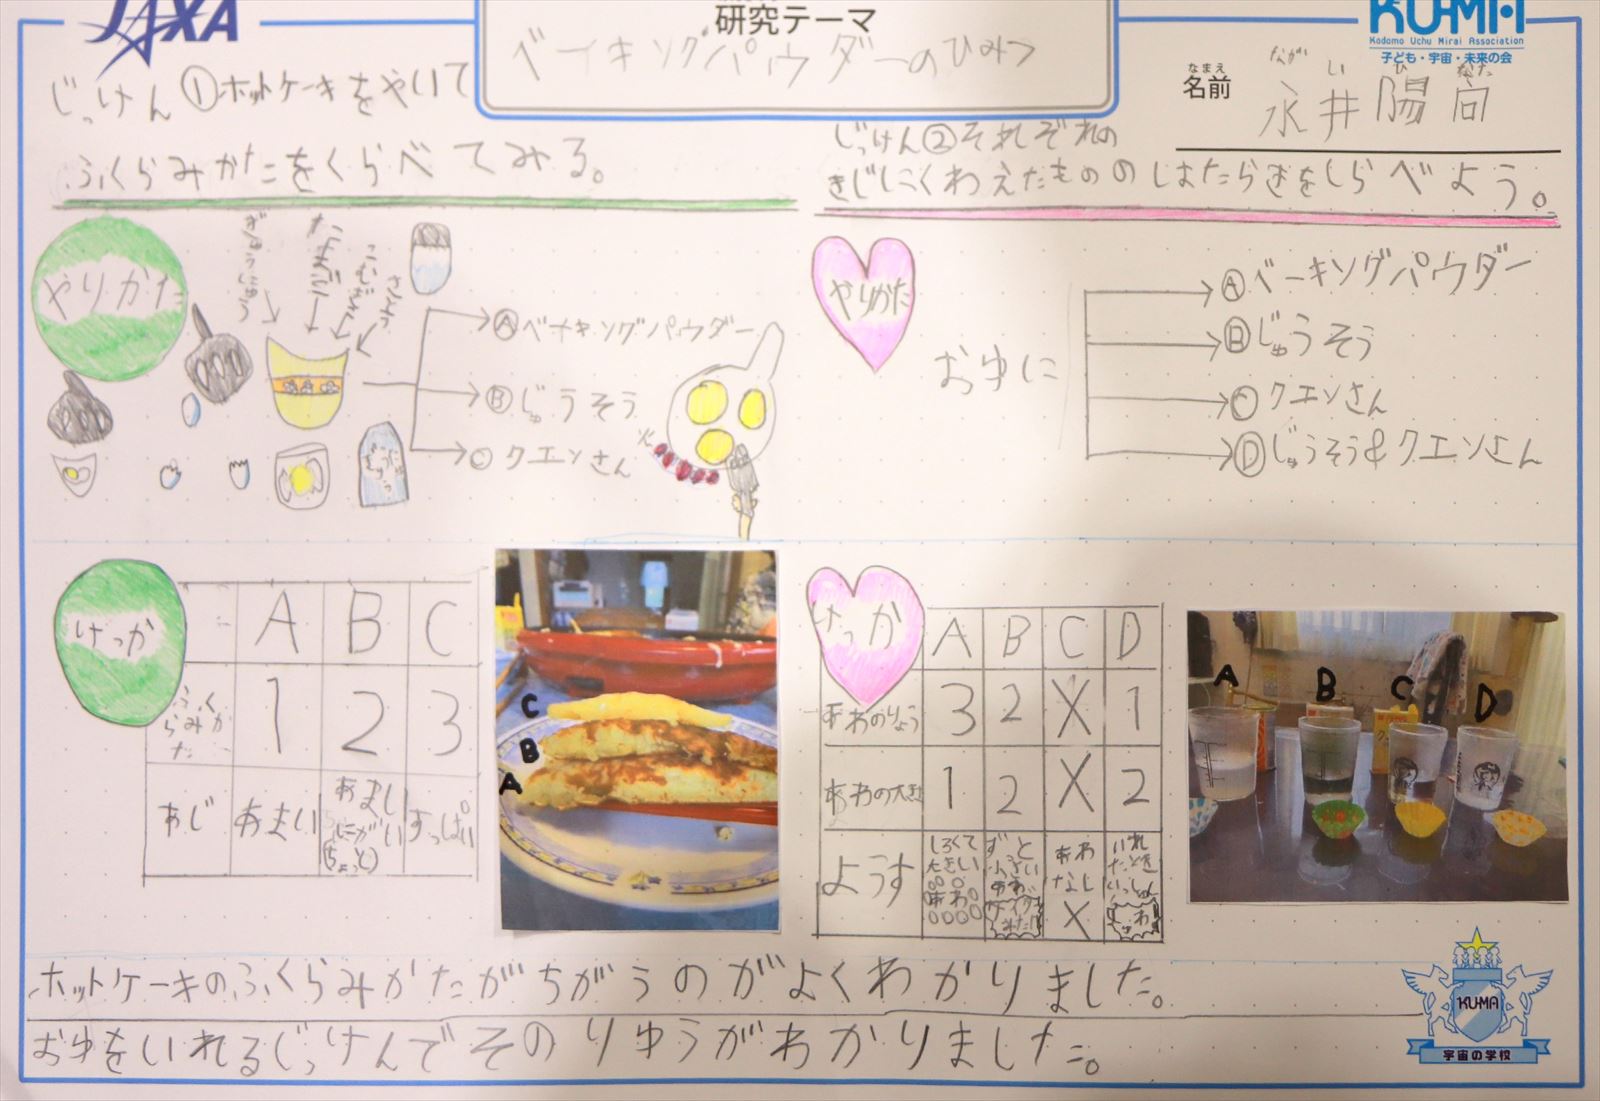 JAXA
研究テーマ
ベイキングパウダーのひみつ
KU-MA
Kodomo Uchu Mirai Association
子ども・宇宙・未来の会
なまえ
名前
ながい ひなた
永井 陽向
じっけん①ホットケーキをやいて
ふくらみかたをくらべてみる。
やりかた
ぎゅうにゅう
たまご
こむぎこ
さとう
Ⓐベイキングパウダー
Ⓑじゅうそう
Ⓒクエンさん
じっけん②それぞれの
きじにくわえたもののはたらきをしらべよう。
やりかた
おゆに
Ⓐベーキングパウダー
Ⓑじゅうそう
Ⓒクエンさん
Ⓓじゅうそう&クエンさん
けっか
A B C
ふくらみかた 1 2 3
あじ あまい あまい にがい(ちょっと) すっぱい
C
B
A
けっか
A B C D
あわのりょう 3 2 X 1
あわの大きさ 1 2 X 2
ようす しろくて大きいあわ ずっと小さいあわ あわなし X いれたとき
A B C D
ホットケーキのふくらみかたがちがうのがよくわかりました。
おゆをいれるじっけんでそのりゆうがわかりました。
KUMA
宇宙の学校